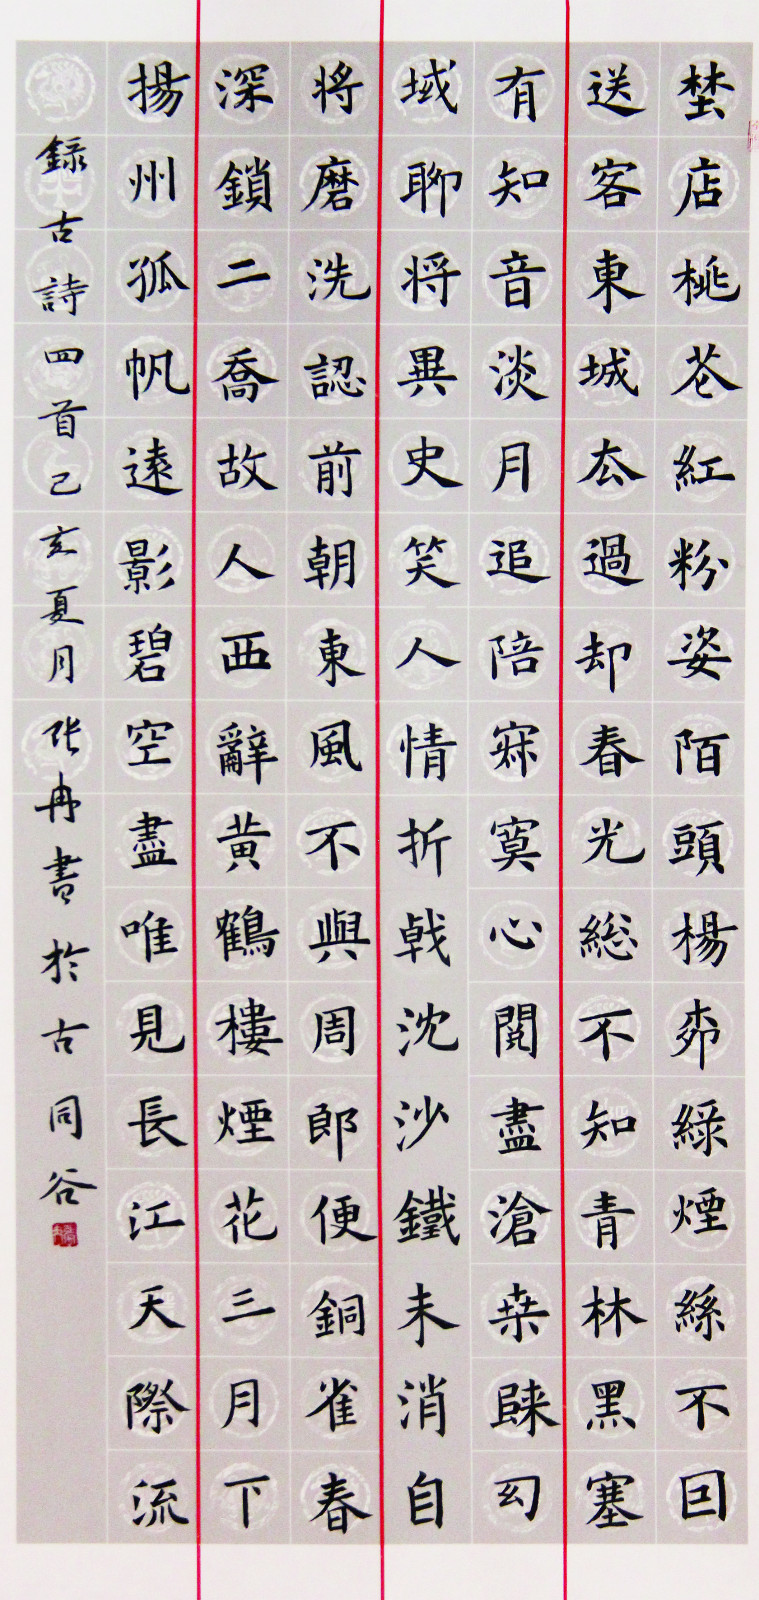 埜店桃花紅粉姿陌頭楊柳綠煙絲不因
送客東城去過却春光総不知青林黑塞
有知音淡月追陪寂寞心閱盡滄桑歸幻
域聊将異史笑人情折戟沈沙鐵未消自
将磨洗認前朝東風不與周郎便銅雀春
深鎖二喬故人西辭黄鶴樓煙花三月下
揚州孤帆遠影碧空盡唯見長江天際流
録古詩四首己亥夏月张冉書於古同谷